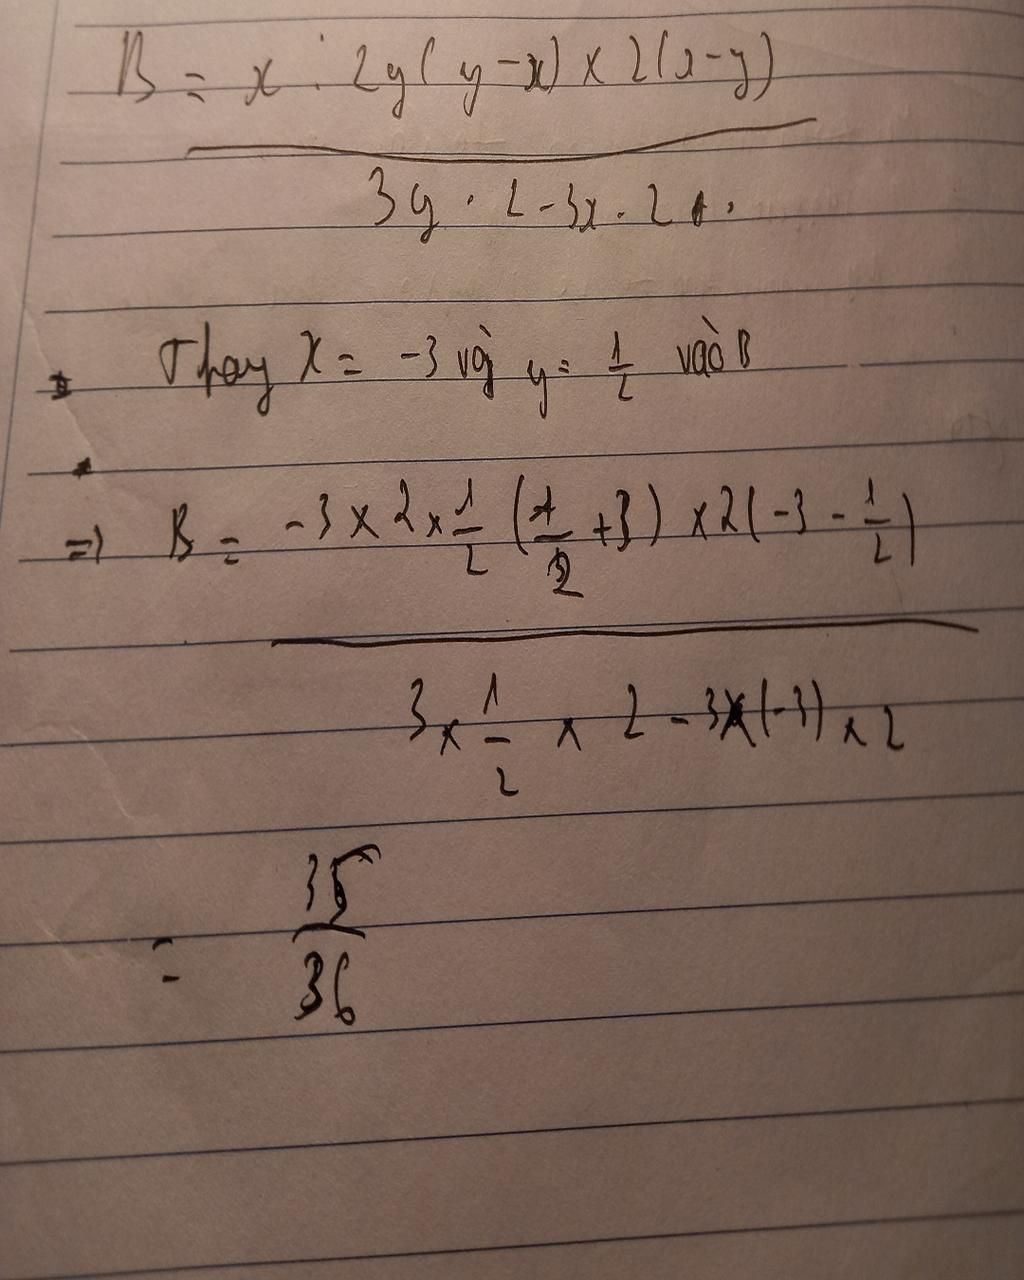 B = x . 2y( y - x) x 2(x-y)
3y . 2 - 3x . 2
Thay X = -3 và y = 1/2 vào B
=) B = -3 x 2 x 1/2 (1/2 +3) x2(-3 - 1/2)
3 x 1/2 x 2 - 3x(-3) x 2
= 35/36